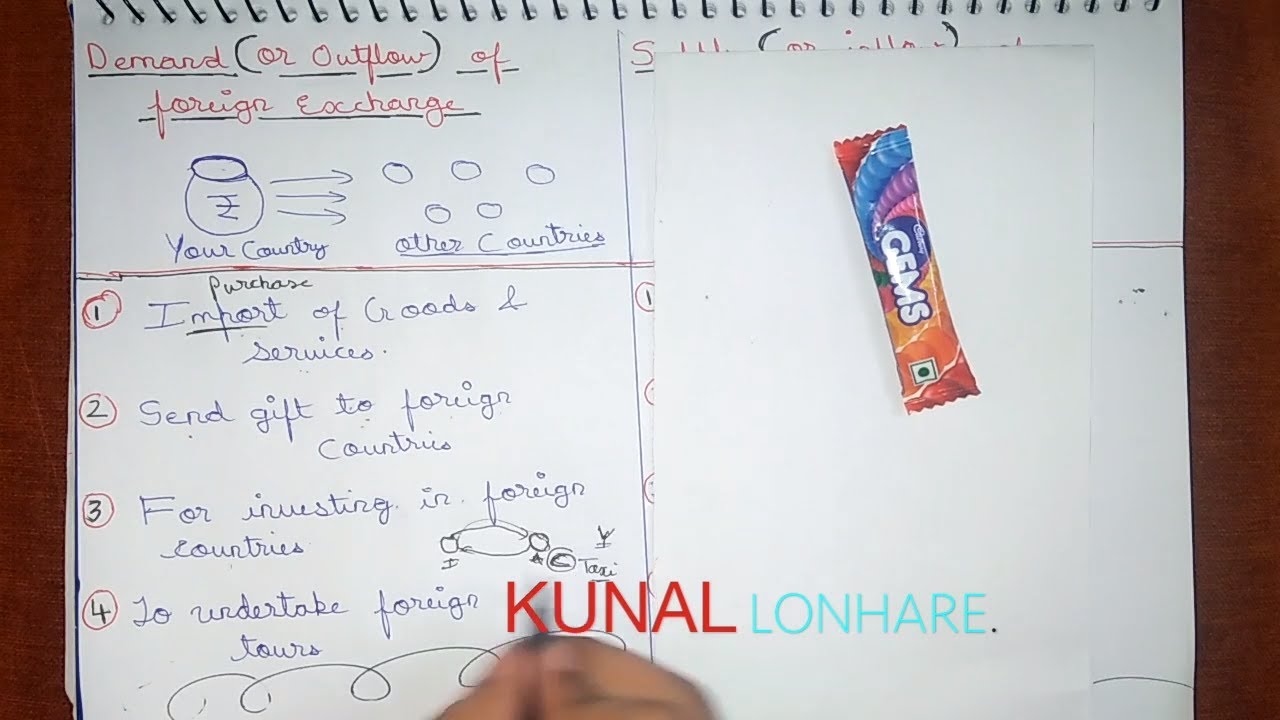 Demand (or Outflow) of
foreign Exchange
(or inflow) of
₹
Your Country
other Countries
Purchase
① Import of Goods &
services.
② Send gift to foreign
Countries
③ For investing in foreign
countries
I A C Taxi
④ To undertake foreign
tours
1
Cadbury
GEMS
KUNAL LONHARE.